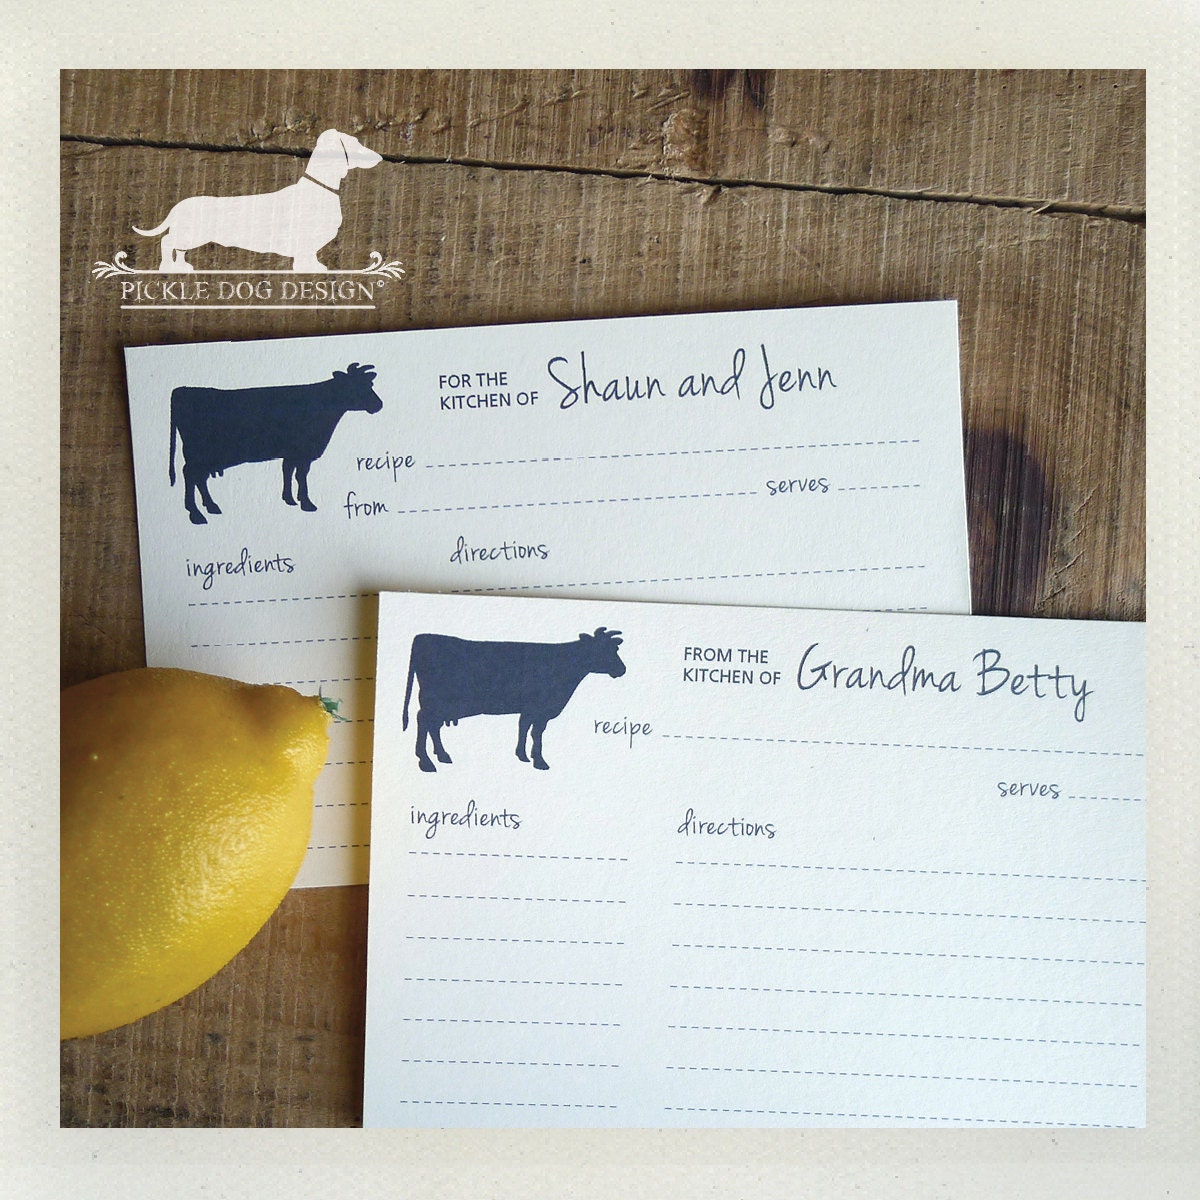 PICKLE DOG DESIGN®
FOR THE
KITCHEN OF Shaun and Jenn
recipe
from serves
ingredients directions
FROM THE
KITCHEN OF Grandma Betty
recipe
serves
ingredients directions